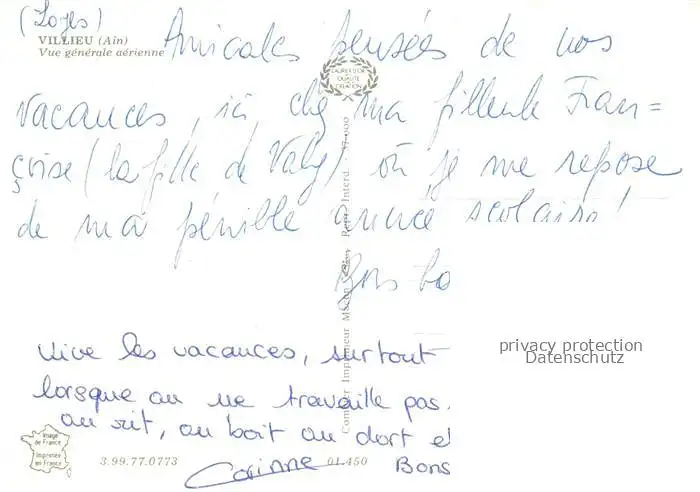 (Loyes)
VILLIEU (Ain)
Vue générale aérienne
Amicales pensées de nos
LAURIER D'OR
DE LA
QUALITÉ
CRÉATION
vacances, ici, chez ma filleule Fran=
çoise (la fille de Valy) où je me repose
de ma pénible année scolaire !
Combier Imprimeur Macon
Repr. Interd.
Vive les vacances, surtout
lorsque on ne travaille pas.
on rit, on boit on dort et
Image
de France
Imprimée
en France
3.99.77.0773
01.450
Corinne
Bons
privacy protection
Datenschutz